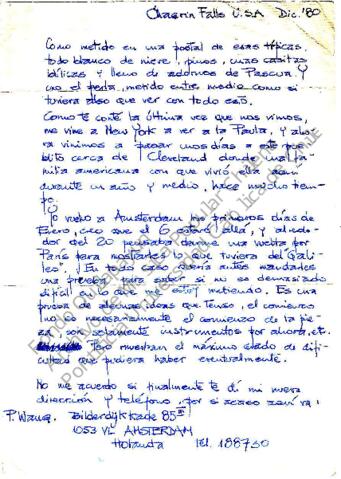 Chagrin Falls U.S.A Dic. '80
Como metido en una postal de esas típicas,
todo blanco de nieve, pinos, unas casitas
idílicas y lleno de adornos de Pascua. Y
uno el perla, metido entre medio como si
tuviera algo que ver con todo esto.
Como te conté la última vez que nos vimos,
me vine a New York a ver a la Paula, y aho
ra vinimos a pasar unos días a este pue
blito cerca de Cleveland donde una fa
milia americana con que vivió ella aquí
durante un año y medio, hace mucho tiem
po.
Yo vuelvo a Amsterdam los primeros días de
Enero, creo que el 6 estaré allá, y alrede
dor del 20 pensaba darme una vuelta por
París para mostrarles lo que tuviera del "Gali
leo". En todo caso quería antes mandarles
una prueba para saber si es demasiado
difícil en lo que me estoy metiendo. Es una
prueba de algunas ideas que tengo, el comienzo
no es necesariamente el comienzo de la pie
za, son solamente instrumentos por ahora, et.
Pero muestran el máximo estado de difi
cultad que pudiera haber eventualmente.
No me acuerdo si finalmente te dí mi nueva
dirección y teléfono, por si acaso aquí va:
P. Wang. Bilderdijkkade 85
1053 VL AMSTERDAM
Holanda Tel. 188730